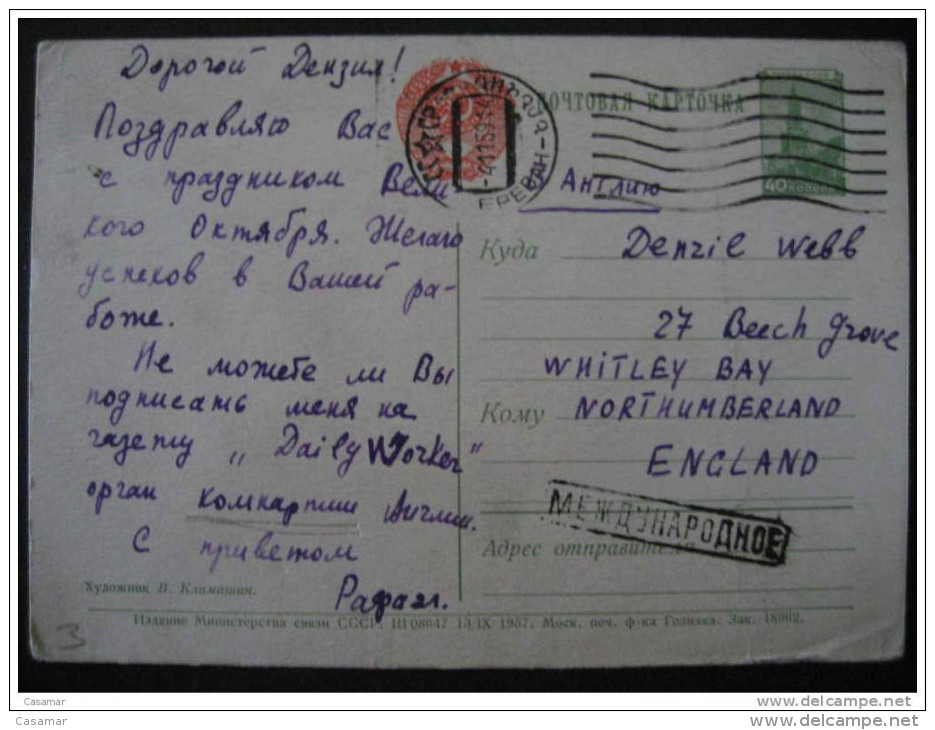 Дорогой Дензил!
Поздравляю Вас
с праздником Вели
кого Октября. Желаю
успехов в Вашей ра-
боте.
Не можете ли Вы
подписать меня на
газету „Daily Worker"
орган компартии Англии.
С приветом
Рафаэл.
Художник В. Климашин.
ПОЧТОВАЯ КАРТОЧКА
ЕРЕВАН
40 копеек
Англию
Куда Denzil Webb
27 Beech Grove
WHITLEY BAY
Кому NORTHUMBERLAND
ENGLAND
МЕЖДУНАРОДНОЕ
Адрес отправителя
Издание Министерства связи СССР. Ш08647 13/IX 1957. Моск. поч. ф-ка Гознака. Зак. 18962.
3
Casamar www.delcampe.net
Casamar www.delcampe.net